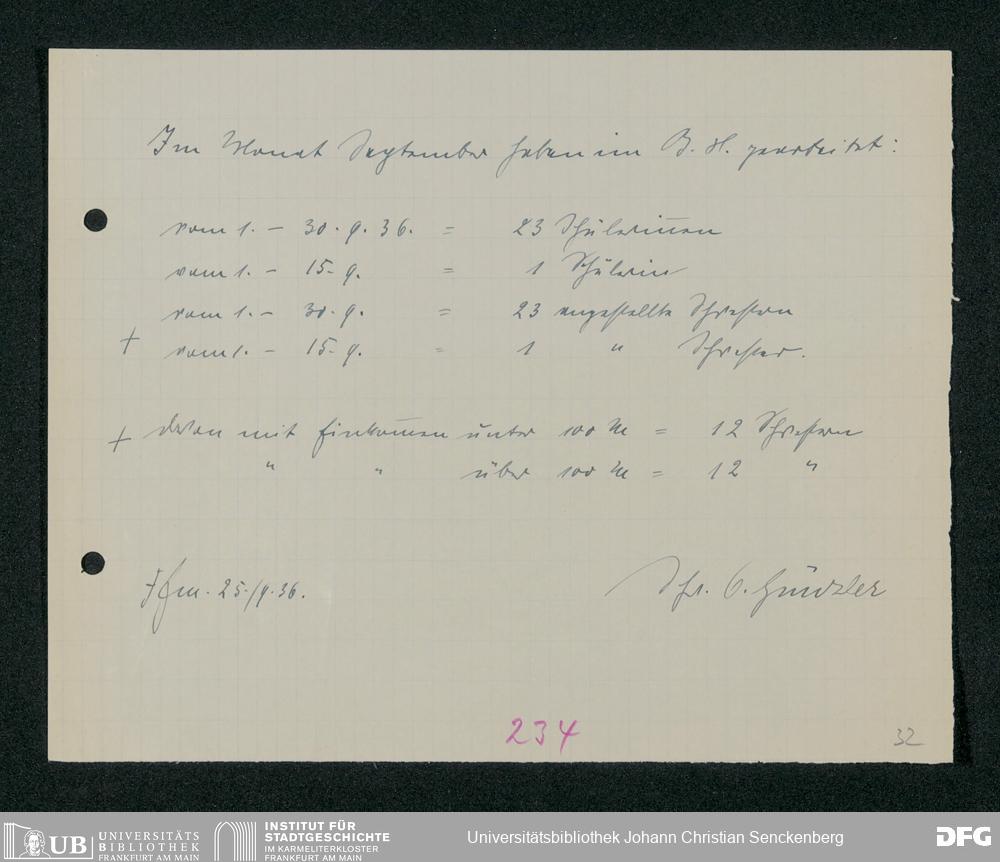 Im Monat September haben im B. H. gearbeitet:
vom 1. – 30. 9. 36. = 23 Schülerinnen
vom 1. – 15. 9. = 1 Schülerin
vom 1. – 30. 9. = 23 angestellte Schwestern
+ vom 1. – 15. 9. = 1 " Schwester.
+ davon mit Einkommen unter 100 M = 12 Schwestern
" " über 100 M = 12 "
Ffm. 25./9. 36. Schw. O.
234
32
UB UNIVERSITÄTS
BIBLIOTHEK
FRANKFURT AM MAIN
INSTITUT FÜR
STADTGESCHICHTE
IM KARMELITERKLOSTER
FRANKFURT AM MAIN
Universitätsbibliothek Johann Christian Senckenberg
DFG